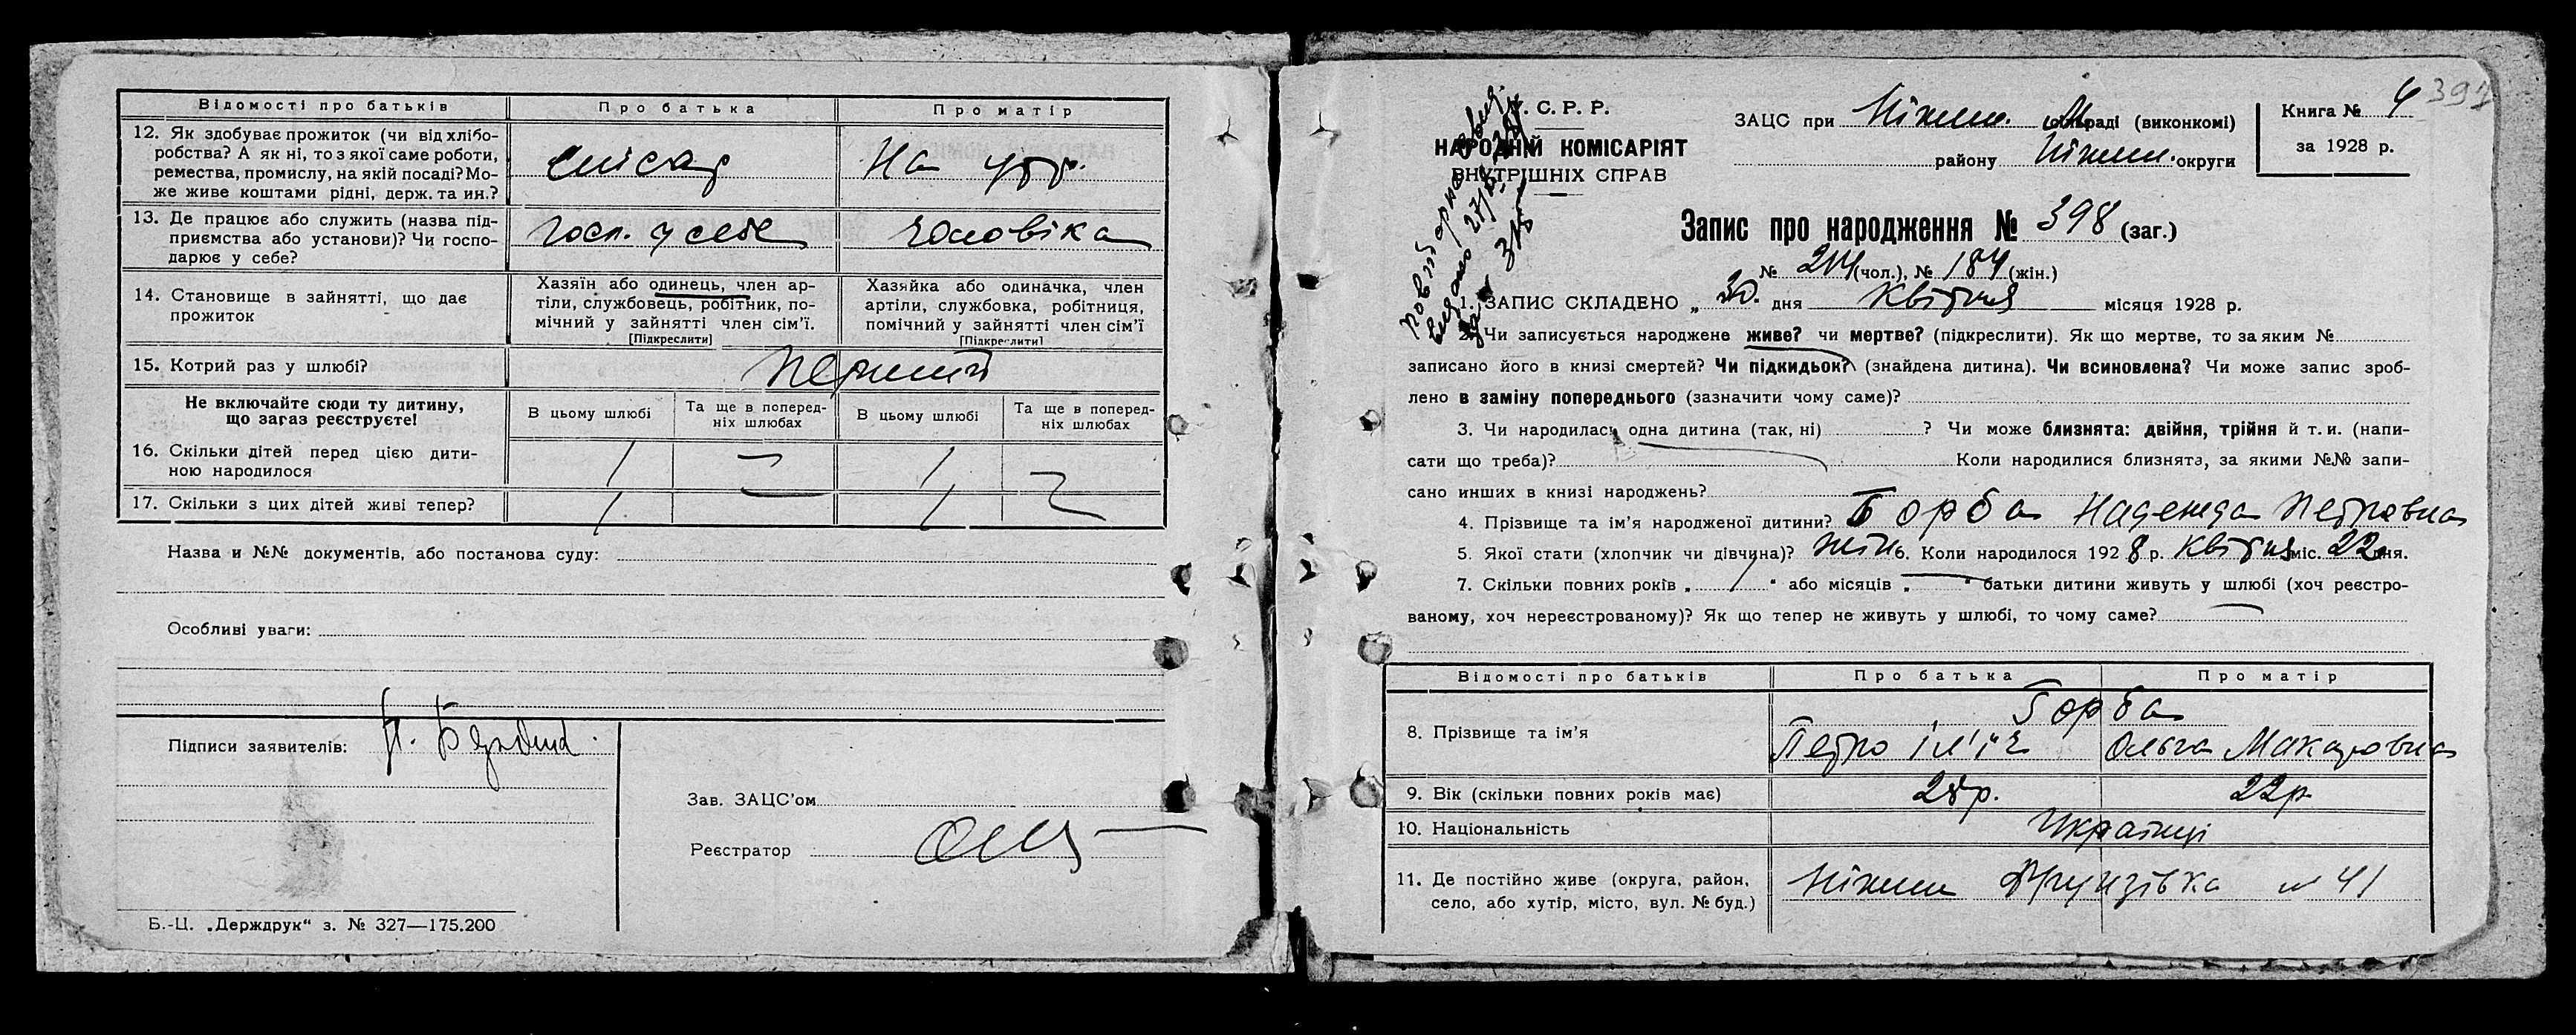 Відомості про батьків Про батька Про матір
12. Як здобуває прожиток (чи від хлібо-
робства? А як ні, то з якої саме роботи,
ремества, промислу, на якій посаді? Мо-
же живе коштами рідні, держ. та ин.?
слюсар На утр.
13. Де працює або служить (назва під-
приємства або установи)? Чи госпо-
дарює у себе?
госп. у себе чоловіка
14. Становище в зайнятті, що дає
прожиток
Хазяїн або одинець, член ар-
тіли, службовець, робітник, по-
мічний у зайнятті член сім'ї.
[Підкреслити]
Хазяйка або одиначка, член
артіли, службовка, робітниця,
помічний у зайнятті член сім'ї
[Підкреслити]
15. Котрий раз у шлюбі? перший
Не включайте сюди ту дитину,
що загаз реєструєте!
В цьому шлюбі Та ще в поперед-
ніх шлюбах В цьому шлюбі Та ще в поперед-
ніх шлюбах
16. Скільки дітей перед цією дити-
ною народилося 1 — 1
17. Скільки з цих дітей живі тепер? 1 — 1
Назва и №№ документів, або постанова суду:
Особливі уваги:
Підписи заявителів:
Зав. ЗАЦС'ом
Реєстратор
Б.-Ц. „Держдрук“ з. № 327—175.200
У. С. Р. Р.
НАРОДНІЙ КОМІСАРІЯТ
ВНУТРІШНІХ СПРАВ
ЗАЦС при Ніжин. М раді (виконкомі)
району Ніжин. округи
Книга № 4
за 1928 р.
391
Запис про народження № 398 (заг.)
№ 214 (чол.), № 184 (жін.)
1. ЗАПИС СКЛАДЕНО „ 30. дня квітня місяця 1928 р.
2. Чи записується народжене живе? чи мертве? (підкреслити). Як що мертве, то за яким №
записано його в книзі смертей? Чи підкидьок? (знайдена дитина). Чи всиновлена? Чи може запис зроб-
лено в заміну попереднього (зазначити чому саме)?
3. Чи народилась одна дитина (так, ні) ? Чи може близнята: двійня, трійня й т. и. (напи-
сати що треба)? Коли народилися близнята, за якими №№ запи-
сано инших в книзі народжень?
4. Прізвище та ім'я народженої дитини? Горба Надежда Петровна
5. Якої стати (хлопчик чи дівчина)? жін 6. Коли народилося 1928 р. квітня міс. 22 дня.
7. Скільки повних років „ “ або місяців „ “ батьки дитини живуть у шлюбі (хоч реєстро-
ваному, хоч нереєстрованому)? Як що тепер не живуть у шлюбі, то чому саме?
Відомості про батьків Про батька Про матір
Горба
8. Прізвище та ім'я Петро Іл'їч Ольга Макаровна
9. Вік (скільки повних років має) 28р. 22р.
10. Національність Українці
11. Де постійно живе (округа, район,
село, або хутір, місто, вул. № буд.)
Ніжин Фрунзівка № 41